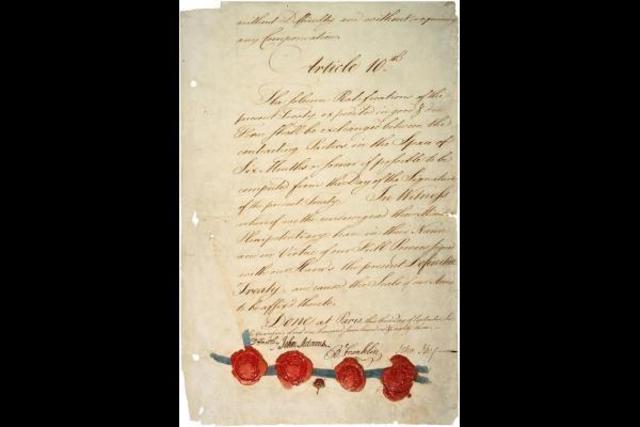 without Difficulty and without requiring
any Compensation.
Article 10.th
The solemn Ratifications of the
present Treaty expedited in good & due
Form shall be exchanged between the
contracting Parties in the Space of
Six Months or sooner if possible to be
computed from the Day of the Signature
of the present Treaty. In Witness
whereof we the undersigned their
Plenipotentiary have in their Name
and in Virtue of our Full Powers signed
with our Hands the present Definitive
Treaty, and caused the Seals of our Arms
to be affix'd thereto.
Done at Paris, this third Day of September, In
D Hartley John Adams B Franklin John Jay